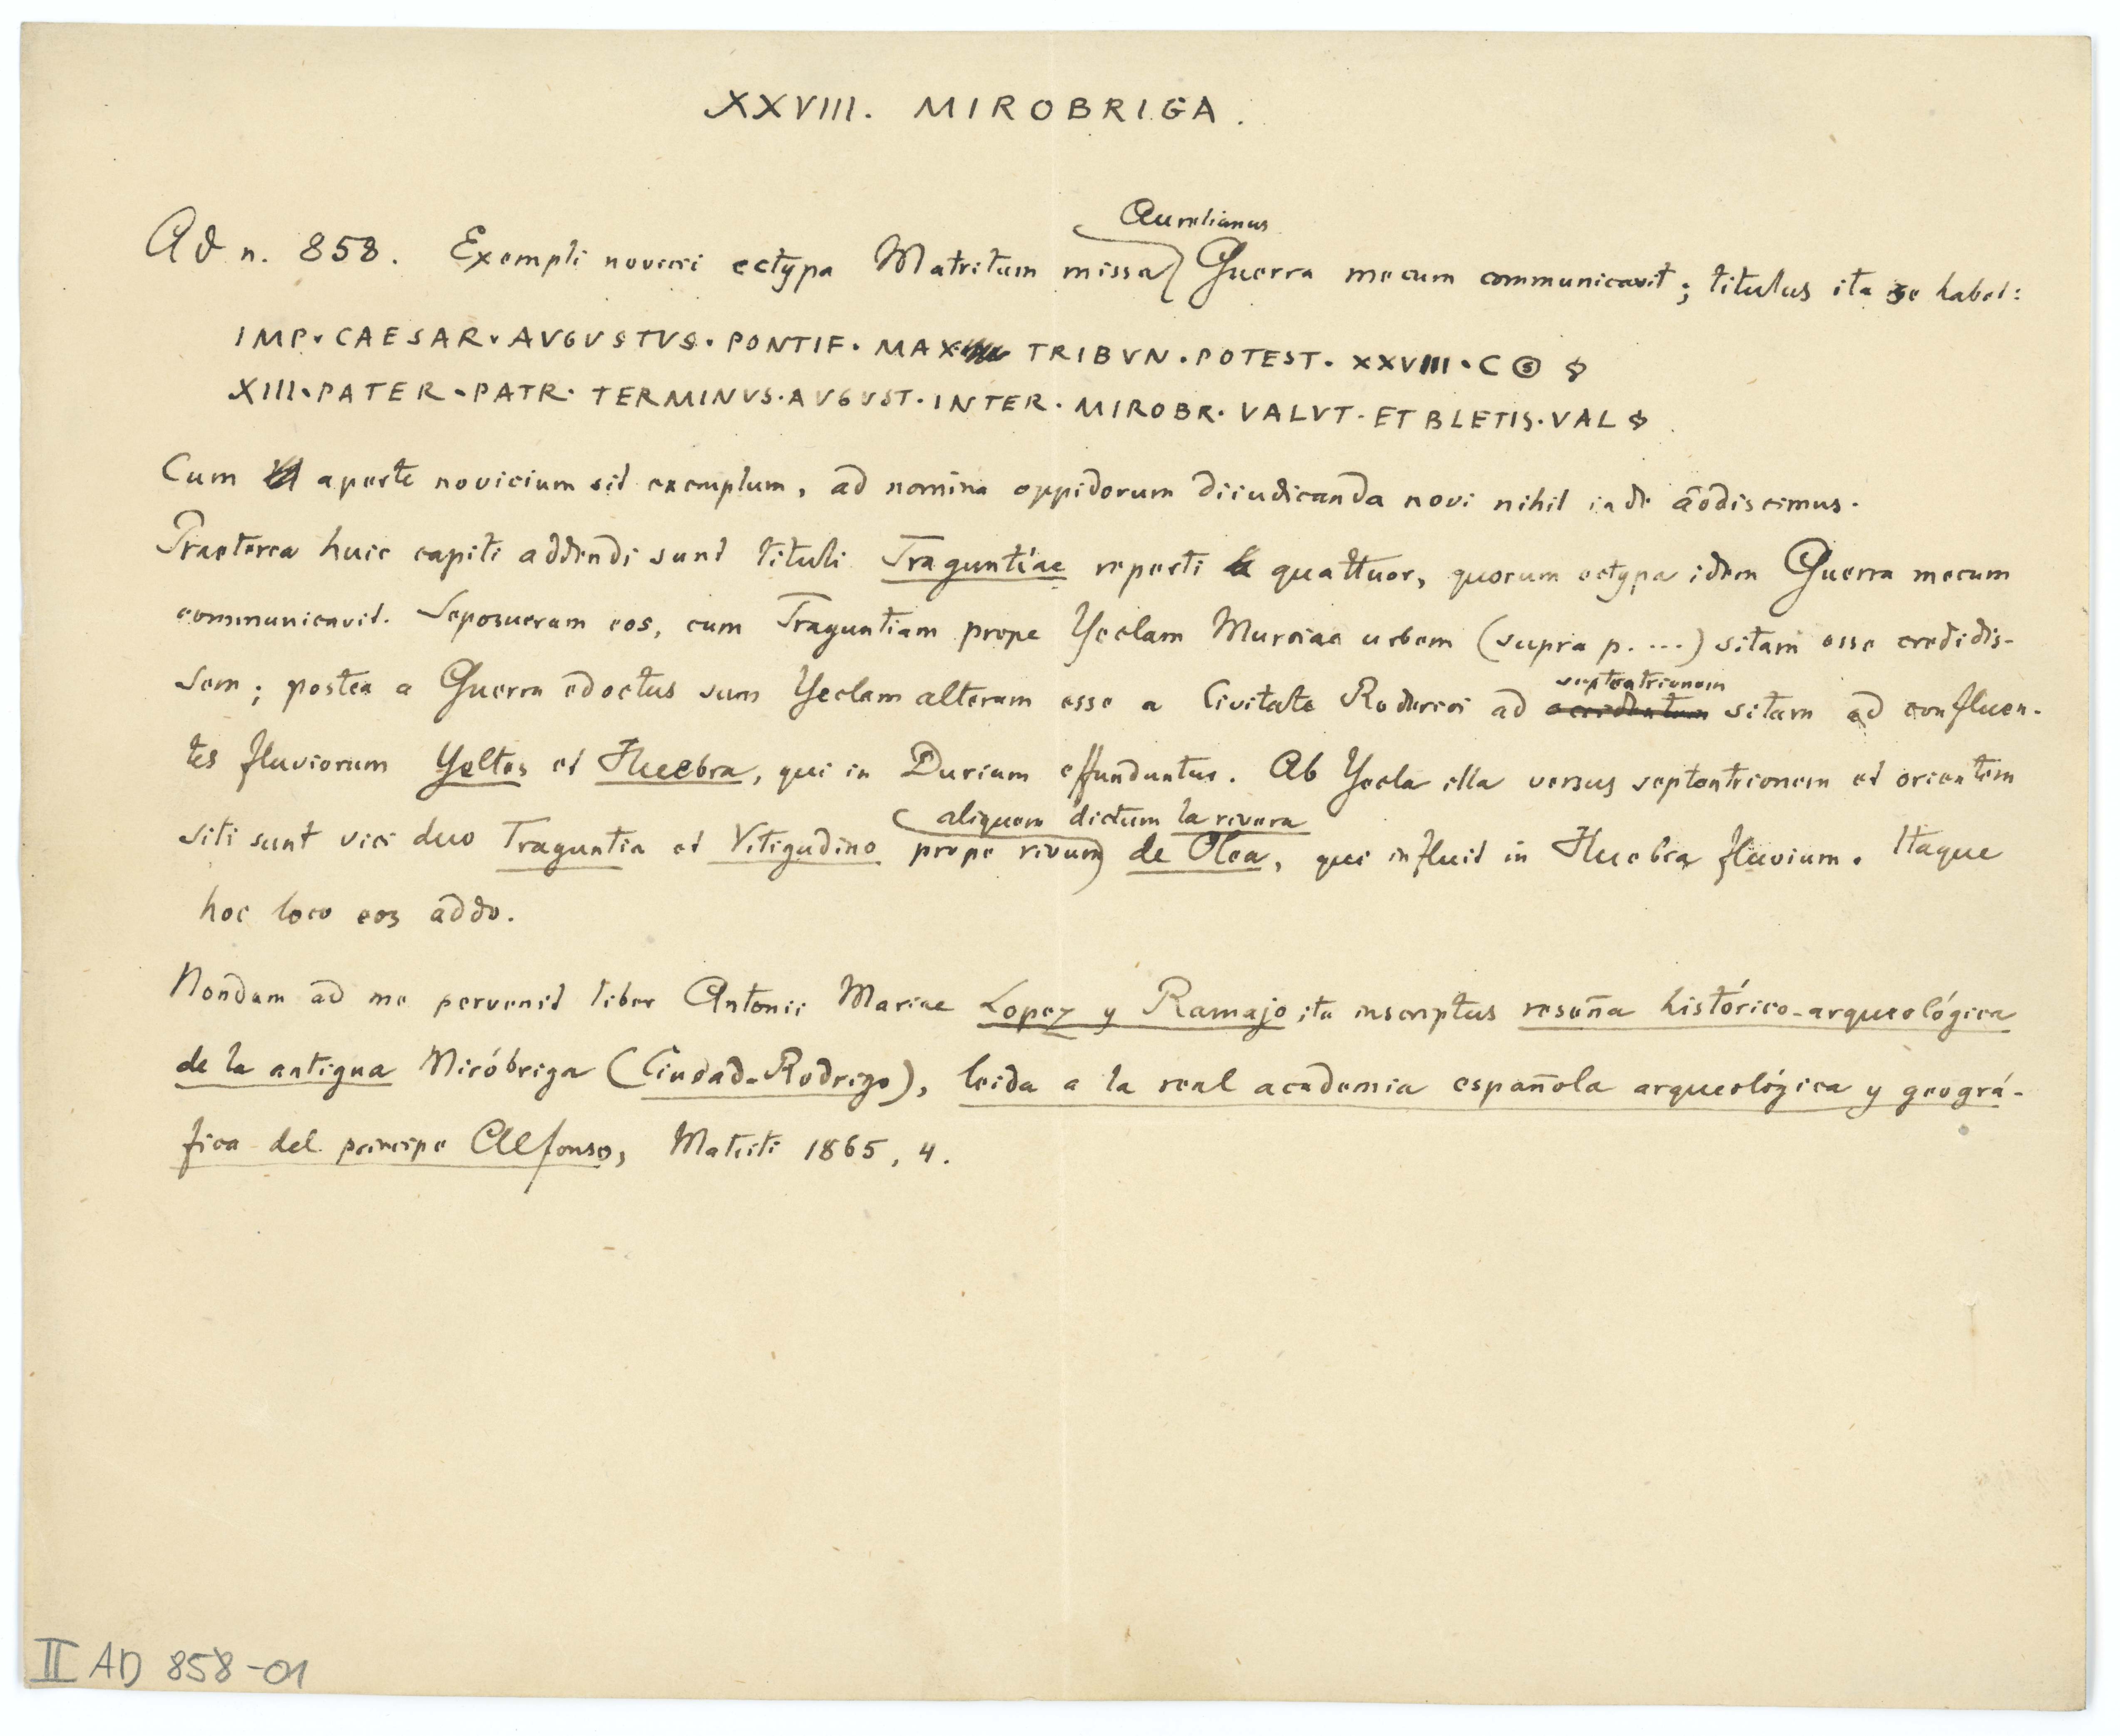 XXVIII. MIROBRIGA.
Ad n. 858. Exempli novicii ectypa Matritum missa Aurelianus Guerra mecum communicavit; titulus ita se habet:
IMP. CAESAR. AVGVSTVS. PONTIF. MAX TRIBVN. POTEST. XXVIII. C Ⓢ
XIII. PATER. PATR. TERMINVS. AVGVST. INTER. MIROBR. VALVT. ET BLETIS. VAL
Cum aperte novicium sit exemplum, ad nomina oppidorum diiudicanda novi nihil inde addiscimus.
Praeterea huic capiti addendi sunt tituli Traguntiae reperti quattuor, quorum ectypa idem Guerra mecum
communicavit. Seposueram eos, cum Traguntiam prope Yeclam Murciae urbem (supra p. ...) sitam esse credidis-
sem; postea a Guerra edoctus sum Yeclam alteram esse a Civitate Roderici ad septentrionem sitam ad confluen-
tes fluviorum Yeltes et Huebra, qui in Durium effunduntur. Ab Yecla illa versus septentrionem et orientem
siti sunt vici duo Traguntia et Vitigudino prope rivum aliquem dictum la rivera de Olea, qui influit in Huebra fluvium. Itaque
hoc loco eos addo.
Nondum ad me pervenit liber Antonii Mariae Lopez y Ramajo ita inscriptus reseña histórico-arqueológica
de la antigua Miróbriga (Ciudad-Rodrigo), leida a la real academia española arqueológica y geográ-
fica del principe Alfonso, Matriti 1865, 4.
II AD 858-01